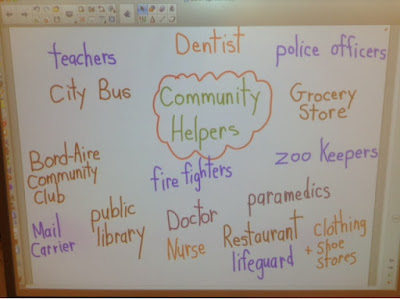 Dentist
teachers
police officers
City Bus
Community
Helpers
Grocery
Store
Bord-Aire
Community
Club
fire fighters
zoo Keepers
paramedics
Mail
Carrier
public
library
Doctor
Nurse
Restaurant
lifeguard
clothing
+ shoe
stores